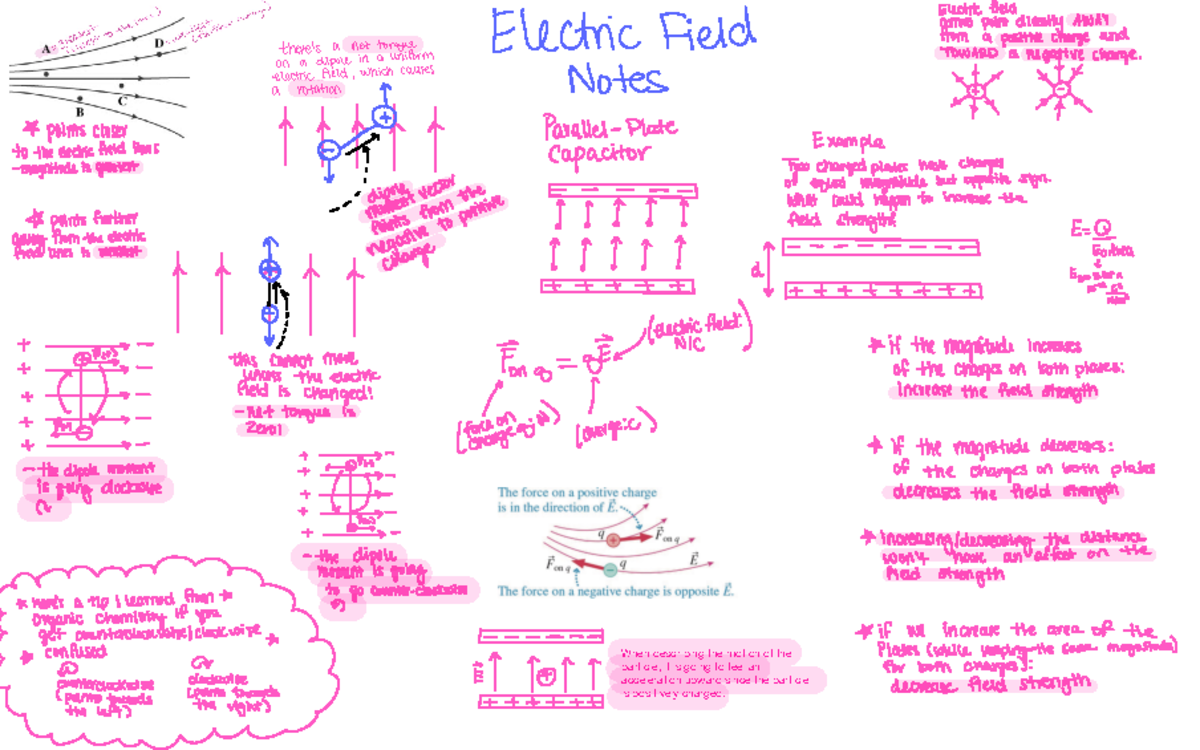 Electric Field
Notes
A
D
C
B
★ points closer
to the electric field lines
-magnitude is greatest
★ points further
away from the electric
field lines is
there's a net torque
on a dipole in a uniform
electric field, which causes
a rotation
+
-
dipole
moment vector
points from the
negative to positive
charge
Electric field
points directly AWAY
from a positive charge and
TOWARD a negative charge.
+
-
Parallel-Plate
Capacitor
- - - - - -
+ + + + + +
Example
Two charged plates have charges
of equal magnitude but opposite sign.
What could happen to increase the
field strength?
d
- - - - - - -
+ + + + + + + +
E= Q
Area
this cannot move
unless the electric
field is changed!
-net torque is
zero!
- the dipole moment
is going clockwise
- the dipole
moment is going
to go counter-clockwise
F on q = qE
(electric field:
N/C
(force on
charge q: N)
(charge: C)
★ if the magnitude increases
of the charges on both plates:
increase the field strength
★ if the magnitude decreases:
of the charges on both plates
decreases the field strength
★ increasing/decreasing the distance
won't have an effect on the
field strength
★ if we increase the area of the
plates (while keeping the same magnitude)
for both charges):
decrease field strength
The force on a positive charge
is in the direction of E⃗.
q
+
F⃗on q
F⃗on q
-
q
E⃗
The force on a negative charge is opposite E⃗.
★ here's a tip I learned from ★
organic chemistry if you
get counterclockwise/clockwise ★
★ confused
counterclockwise
(points towards
the left)
clockwise
(points towards
the right)
- - - - - - - -
+
+ + + + + + + +
When describing the motion of the
particle, it is going to feel an
acceleration upward since the particle
is positively charged.